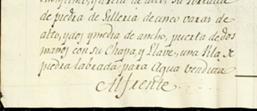 de piedra de Silleria de cinco varas de
alto, y dos y media de ancho, puerta de dos
manos con su Chapa, y Llave, una Pila de
piedra labrada para Agua vendita
Al frente